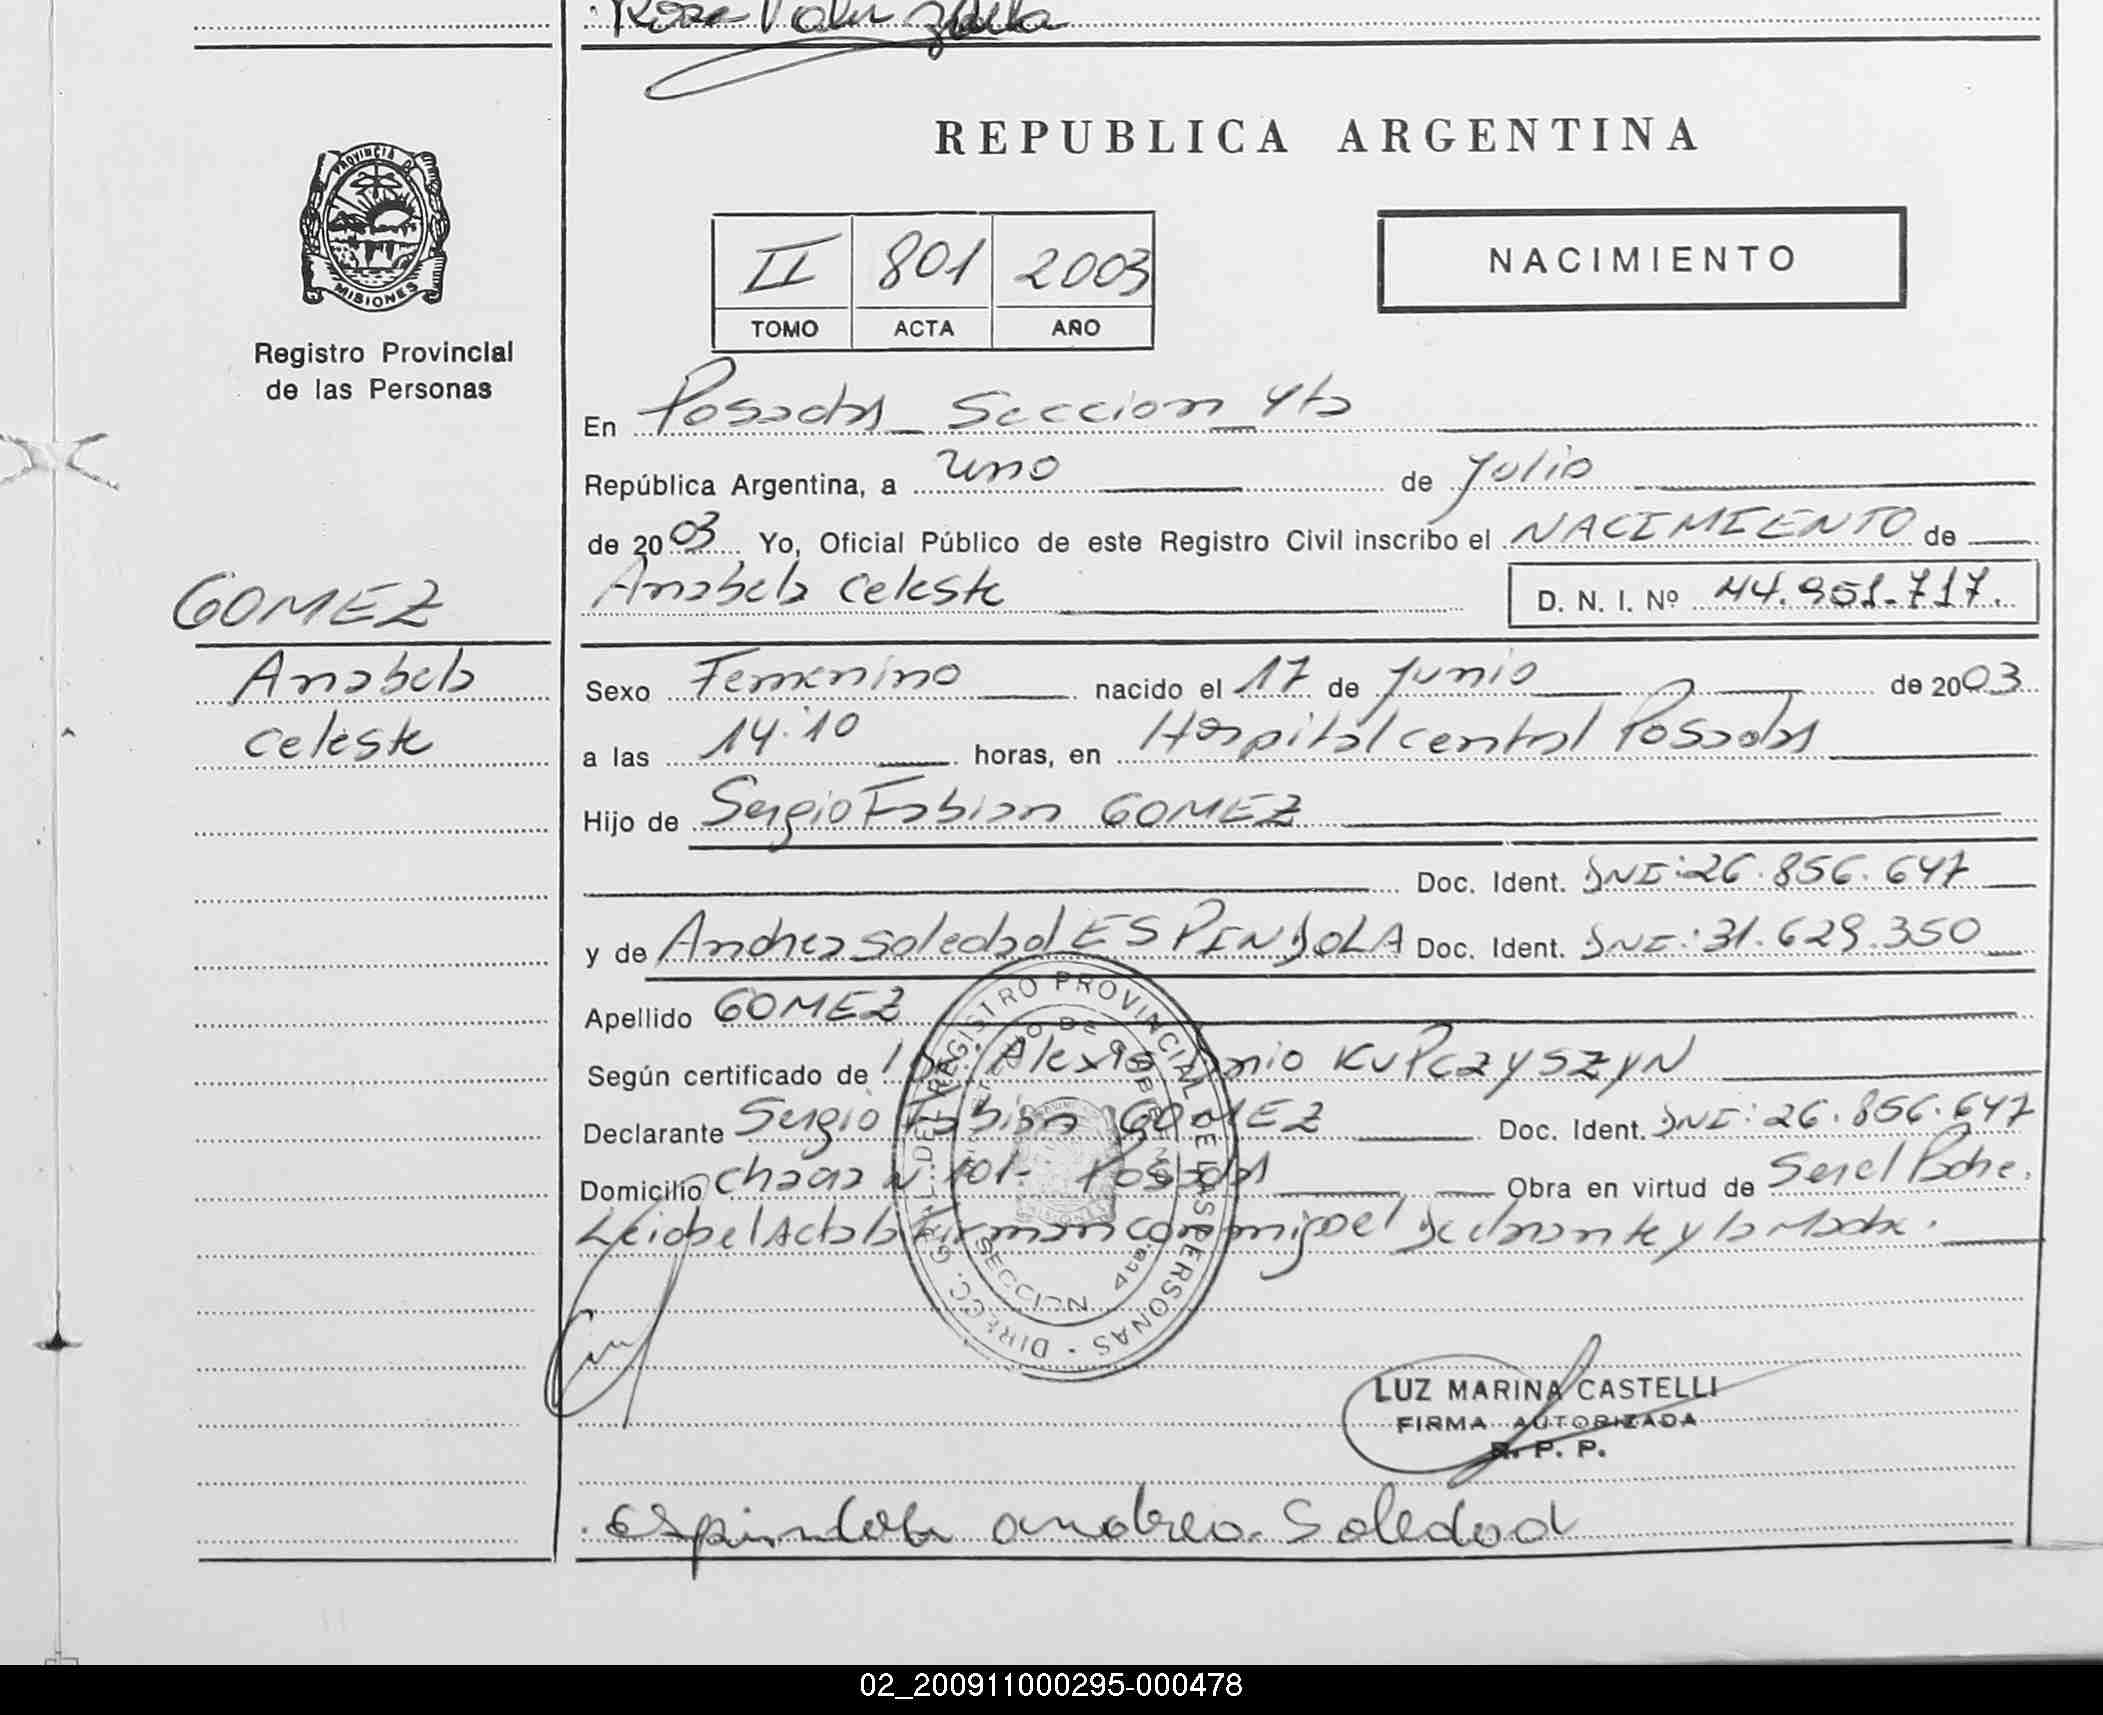 Rosa Valenzuela
PROVINCIA DE
MISIONES
Registro Provincial
de las Personas
GOMEZ
Anabela
Celeste
REPUBLICA ARGENTINA
II 801 2003
TOMO ACTA AÑO
NACIMIENTO
En Posadas Seccion 4ta
República Argentina, a uno de Julio
de 2003 Yo, Oficial Público de este Registro Civil inscribo el NACIMIENTO de
Anabela Celeste D. N. I. Nº 44.951.717.
Sexo Femenino nacido el 17 de Junio de 2003
a las 14:10 horas, en Hospital central Posadas
Hijo de Sergio Fabian GOMEZ
Doc. Ident. DNI: 26.856.647
y de Andrea Soledad ESPINDOLA Doc. Ident. DNI: 31.629.350
Apellido GOMEZ
Según certificado de Alexis KUPCZYSZYN
Declarante Sergio Fabian GOMEZ Doc. Ident. DNI: 26.856.647
Domicilio Chacra N 101- Posadas Obra en virtud de Ser el Padre.
Leida el Acta la Firman conmigo el Declarante y la Madre.
DIRECC. GRAL. DEL REGISTRO PROVINCIAL DE LAS PERSONAS
SECCION 4ta.
MISIONES
LUZ MARINA CASTELLI
FIRMA AUTORIZADA
R. P. P.
Espindola Andrea Soledad
02_200911000295-000478